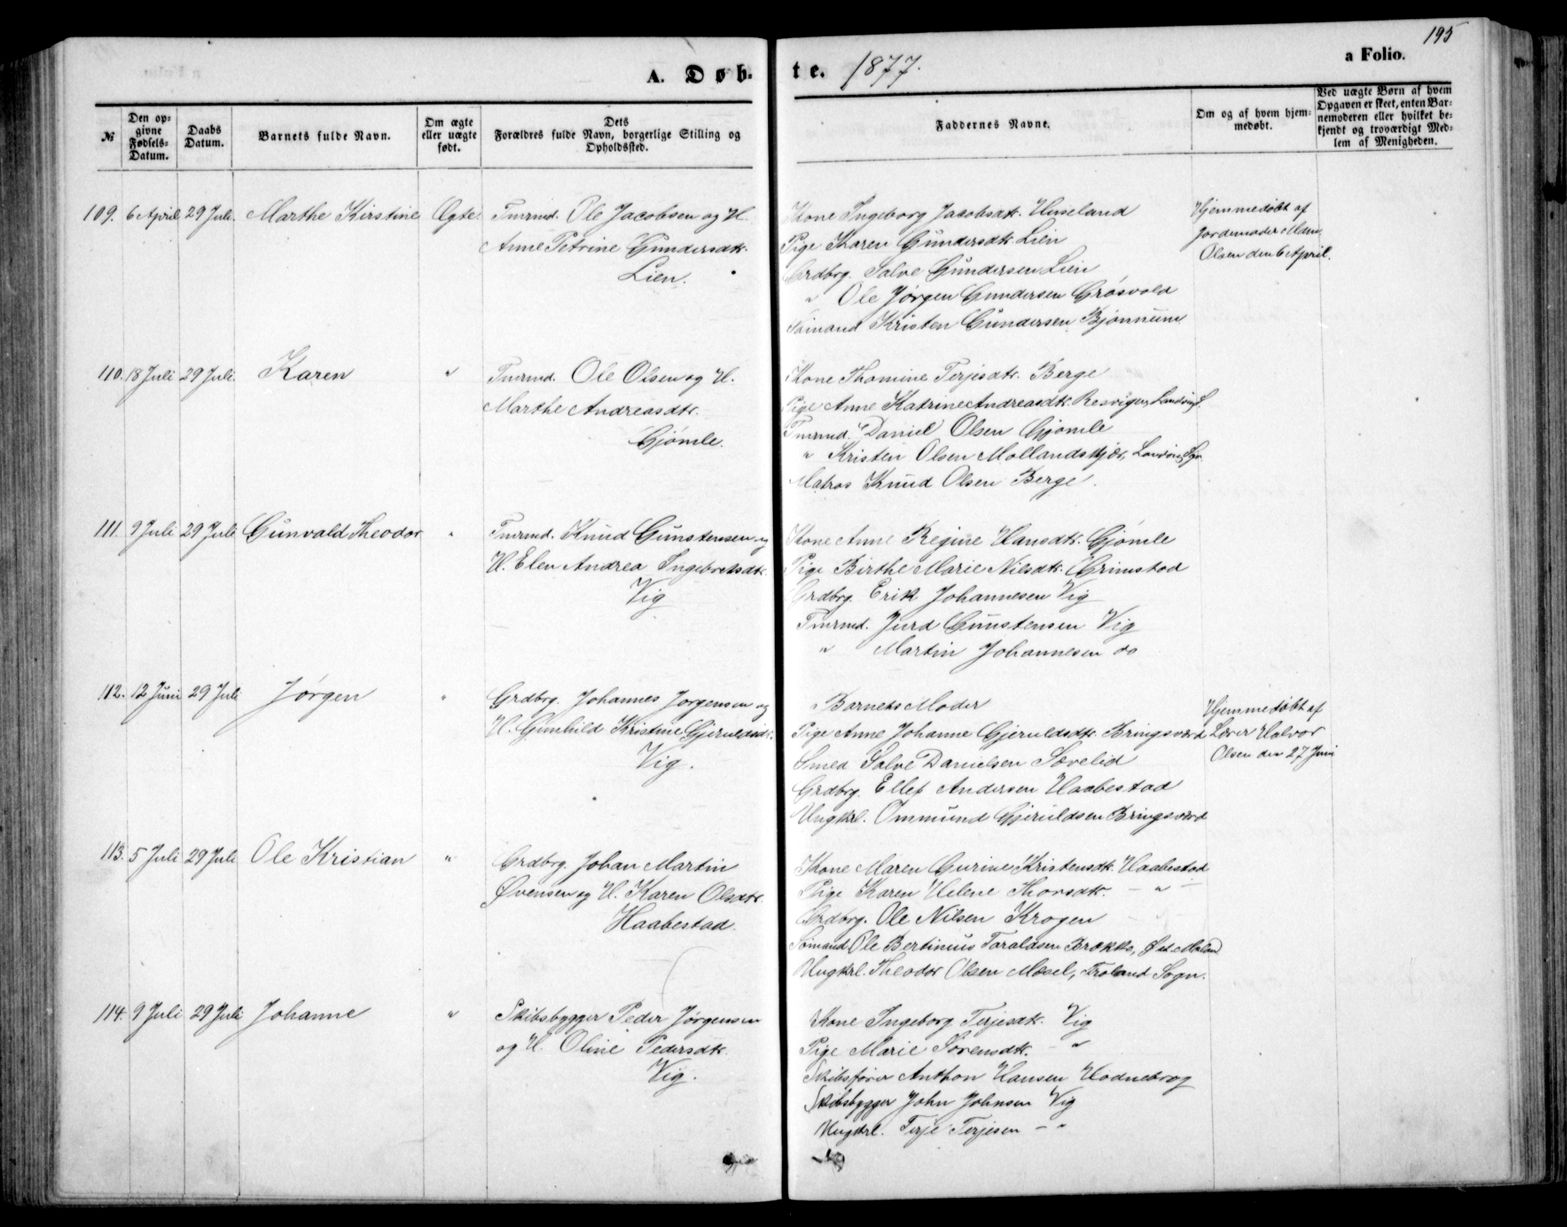 195
A. Døb- te. 1877.
a Folio.
№
Den opgivne Fødsels-Datum.
Daabs Datum.
Barnets fulde Navn.
Om ægte eller uægte født.
Dets Forældres fulde Navn, borgerlige Stilling og Opholdssted.
Faddernes Navne.
Om og af hvem hjemmedøbt.
Ved uægte Børn af hvem Opgaven er skeet, enten Barnemoderen eller hvilket bekjendt og troværdigt Medlem af Menigheden.
109. 6 April 29 Juli. Marthe Kirstine Ægte. Tmrmd. Ole Jacobsen og H.
Anne Petrine Gundersdtr.
Lien.
Kone Ingeborg Jacobsdt. Huseland
Pige Karen Gundersdtr. Lien
Grdbrg. Salve Gundersen Lien
" Ole Jørgen Gundersen Grøsvold
Sømand Kristen Gundersen Bjønnum
Hjemmedøbt af
Jordemoder Mdm.
Olsen den 6 April.
110. 18 Juli 29 Juli. Karen " Tmrmd. Ole Olsen og H.
Marthe Andreasdtr.
Gjömle.
Kone Thomine Terjesdtr. Berge
Pige Anne Katrine Andreasdtr. Resvigen, Landvig S.
Tmrmd. Daniel Olsen Gjömle
" Kristen Olsen Mollandskjær, Landvig Sgn
Matros Knud Olsen Berge.
111. 9 Juli 29 Juli Gunvald Theodor " Tmrmd. Knud Gunstensen og
H. Elen Andrea Ingebretsdtr.
Vig
Kone Anne Regine Hansdt. Gjömle
Pige Birthe Marie Nilsdtr. Grimstad
Grdbrg. Erik Johannesen Vig
Tmrmd. Jurd Gunstensen Vig
" Martin Johannesen do
112. 12 Juni 29 Juli Jørgen " Grdbrg. Johannes Jorgensen og
H. Gunhild Kristine Gjeruldsdt.
Vig.
Barnets Moder
Pige Anne Johanne Gjeruldsdtr. Bringsværd
Smed Salve Danielsen Sævelid
Grdbrg. Ellef Andersen Haabestad
Ungkrl. Ommund Gjeruldsen Bringsværd
Hjemmedøbt af
Lærer Halvor
Olsen den 27 Juni
113. 5 Juli 29 Juli Ole Kristian " Grdbrg. Johan Martin
Øvensen og H. Karen Olsdtr.
Haabestad.
Kone Maren Gurine Kristensdt. Haabestad
Pige Karen Helene Thorsdtr. — " —
Grdbrg. Ole Nilsen Krogen
Sømand Ole Bertinius Taraldsen Brække, Øst. Moland
Ungkrl. Theodor Olsen Mæsel, Froland Sogn.
114. 9 Juli 29 Juli Johanne " Skibsbygger Peder Jørgensen
og H. Oline Pedersdtr.
Vig.
Kone Ingeborg Terjesdt. Vig
Pige Marie Sørensdtr. — "
Skibsfører Anthon Hansen Hodnebrog
Skibsbygger John Johnsen Vig
Ungkrl. Terje Terjesen — "